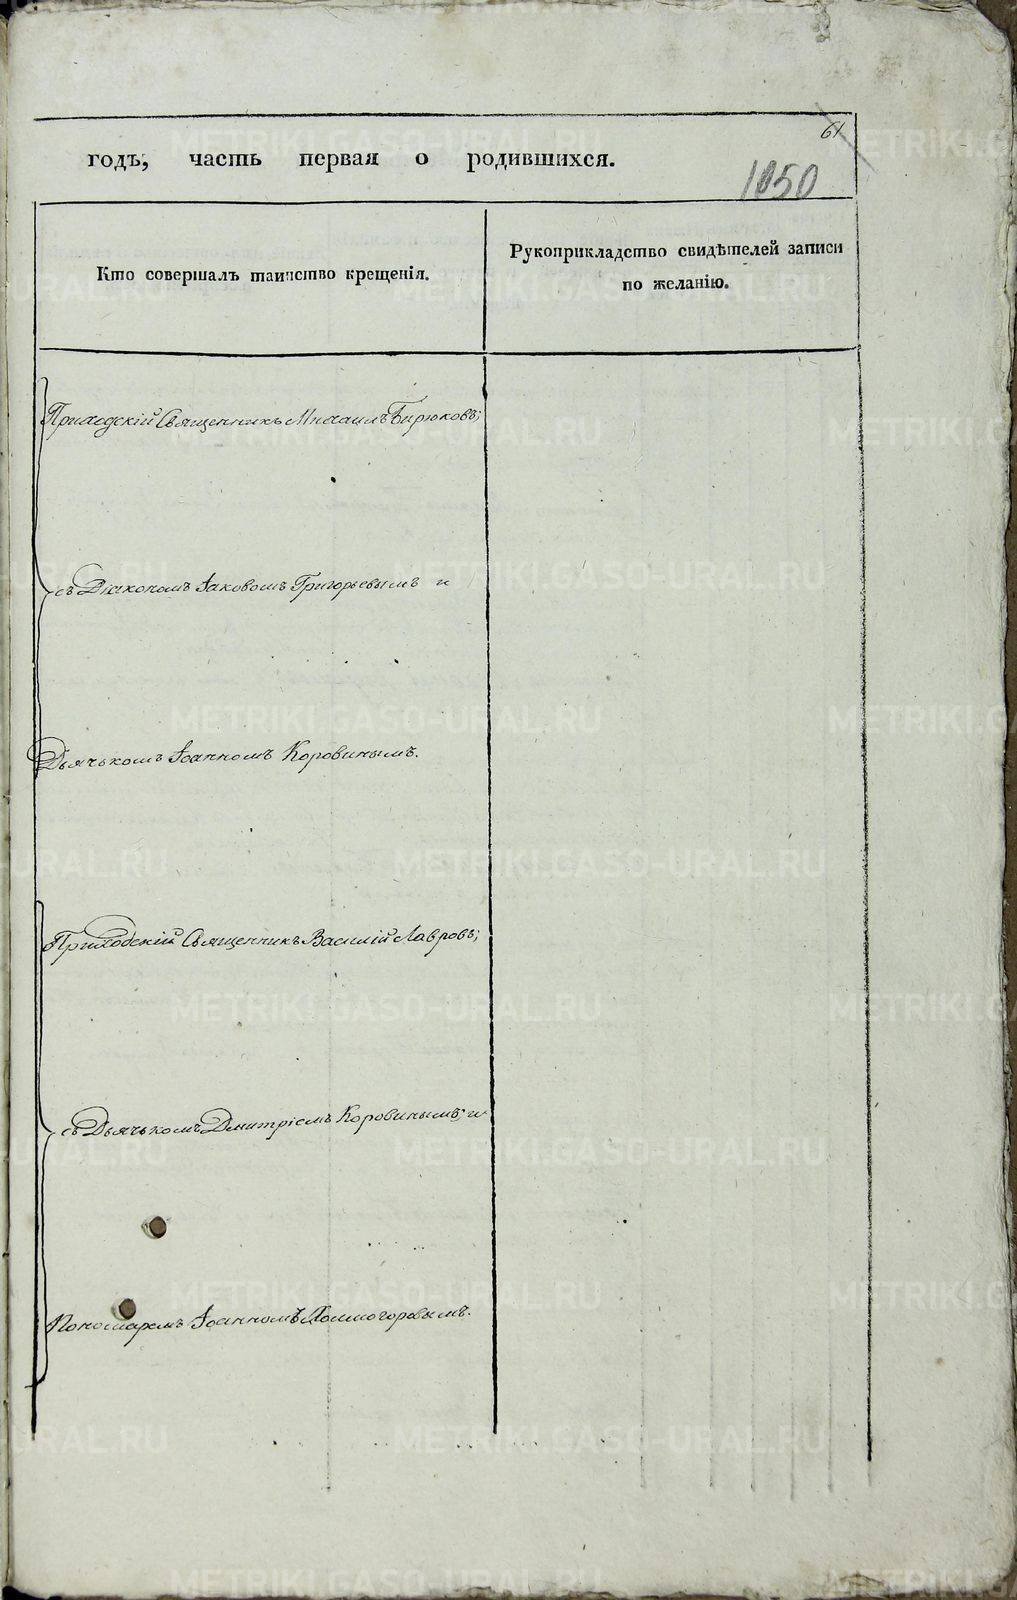 61
годъ, часть первая о родившихся.
1050
Кто совершалъ таинство крещенія.
Рукоприкладство свидѣтелей записи
по желанію.
Приходскій Священникъ Михаилъ Бирюковъ;
съ Діакономъ Іаковомъ Григорьевымъ и
Дьячькомъ Іоанномъ Коровинымъ.
Приходскій Священникъ Василій Лавровъ;
съ Дьячькомъ Димитріемъ Коровинымъ; и
Пономаремъ Іоанномъ Холмогоровымъ.
METRIKI.GASO-URAL.RU